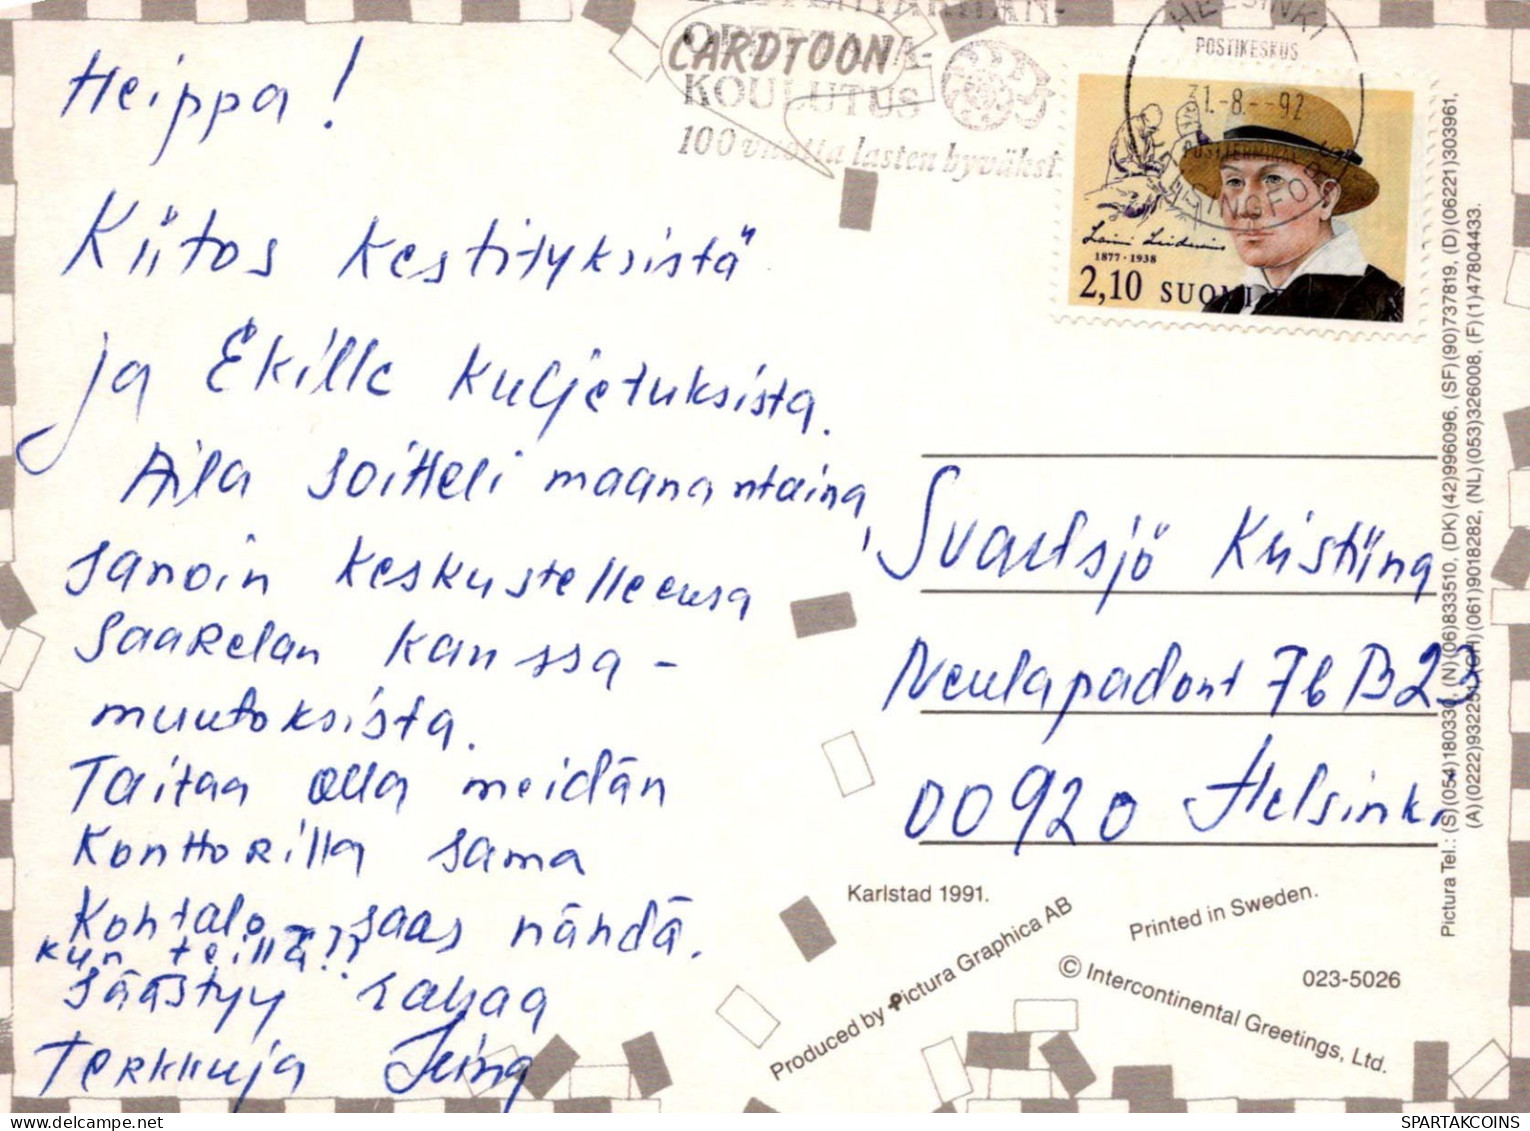 Heippa!
Kiitos kestityksistä
ja Ekille kuljetuksista.
Aila soitteli maanantaina,
sanoin keskustelleeusa
Saarelan kanssa -
muutoksista.
Taitaa olla meidän
Konttorilla sama
Kohtalo, saas nähdä.
kun teillä??
säästyy rahaa
Terkkuja
CARDTOON
OPETTAJA-
KOULUTUS
100 vuotta lasten hyväksi
HELSINKI
POSTIKESKUS
31.-8.--92
HELSINGFORS
1877 · 1938
2,10 SUOMI
Svartsjö Kristiina
Neulapadont 7b B23
00920 Helsinki
Karlstad 1991.
Produced by Pictura Graphica AB
Printed in Sweden.
© Intercontinental Greetings, Ltd.
023-5026
Pictura Tel.: (S)(054)180330, (N)(06)833510, (DK)(42)996096, (SF)(90)737819, (D)(06221)303961,
(A)(0222)932251, (CH)(061)9018282, (NL)(053)326008, (F)(1)47804433.
WWW.SPARTAKCOINS.COM
SPARTAKCOINS